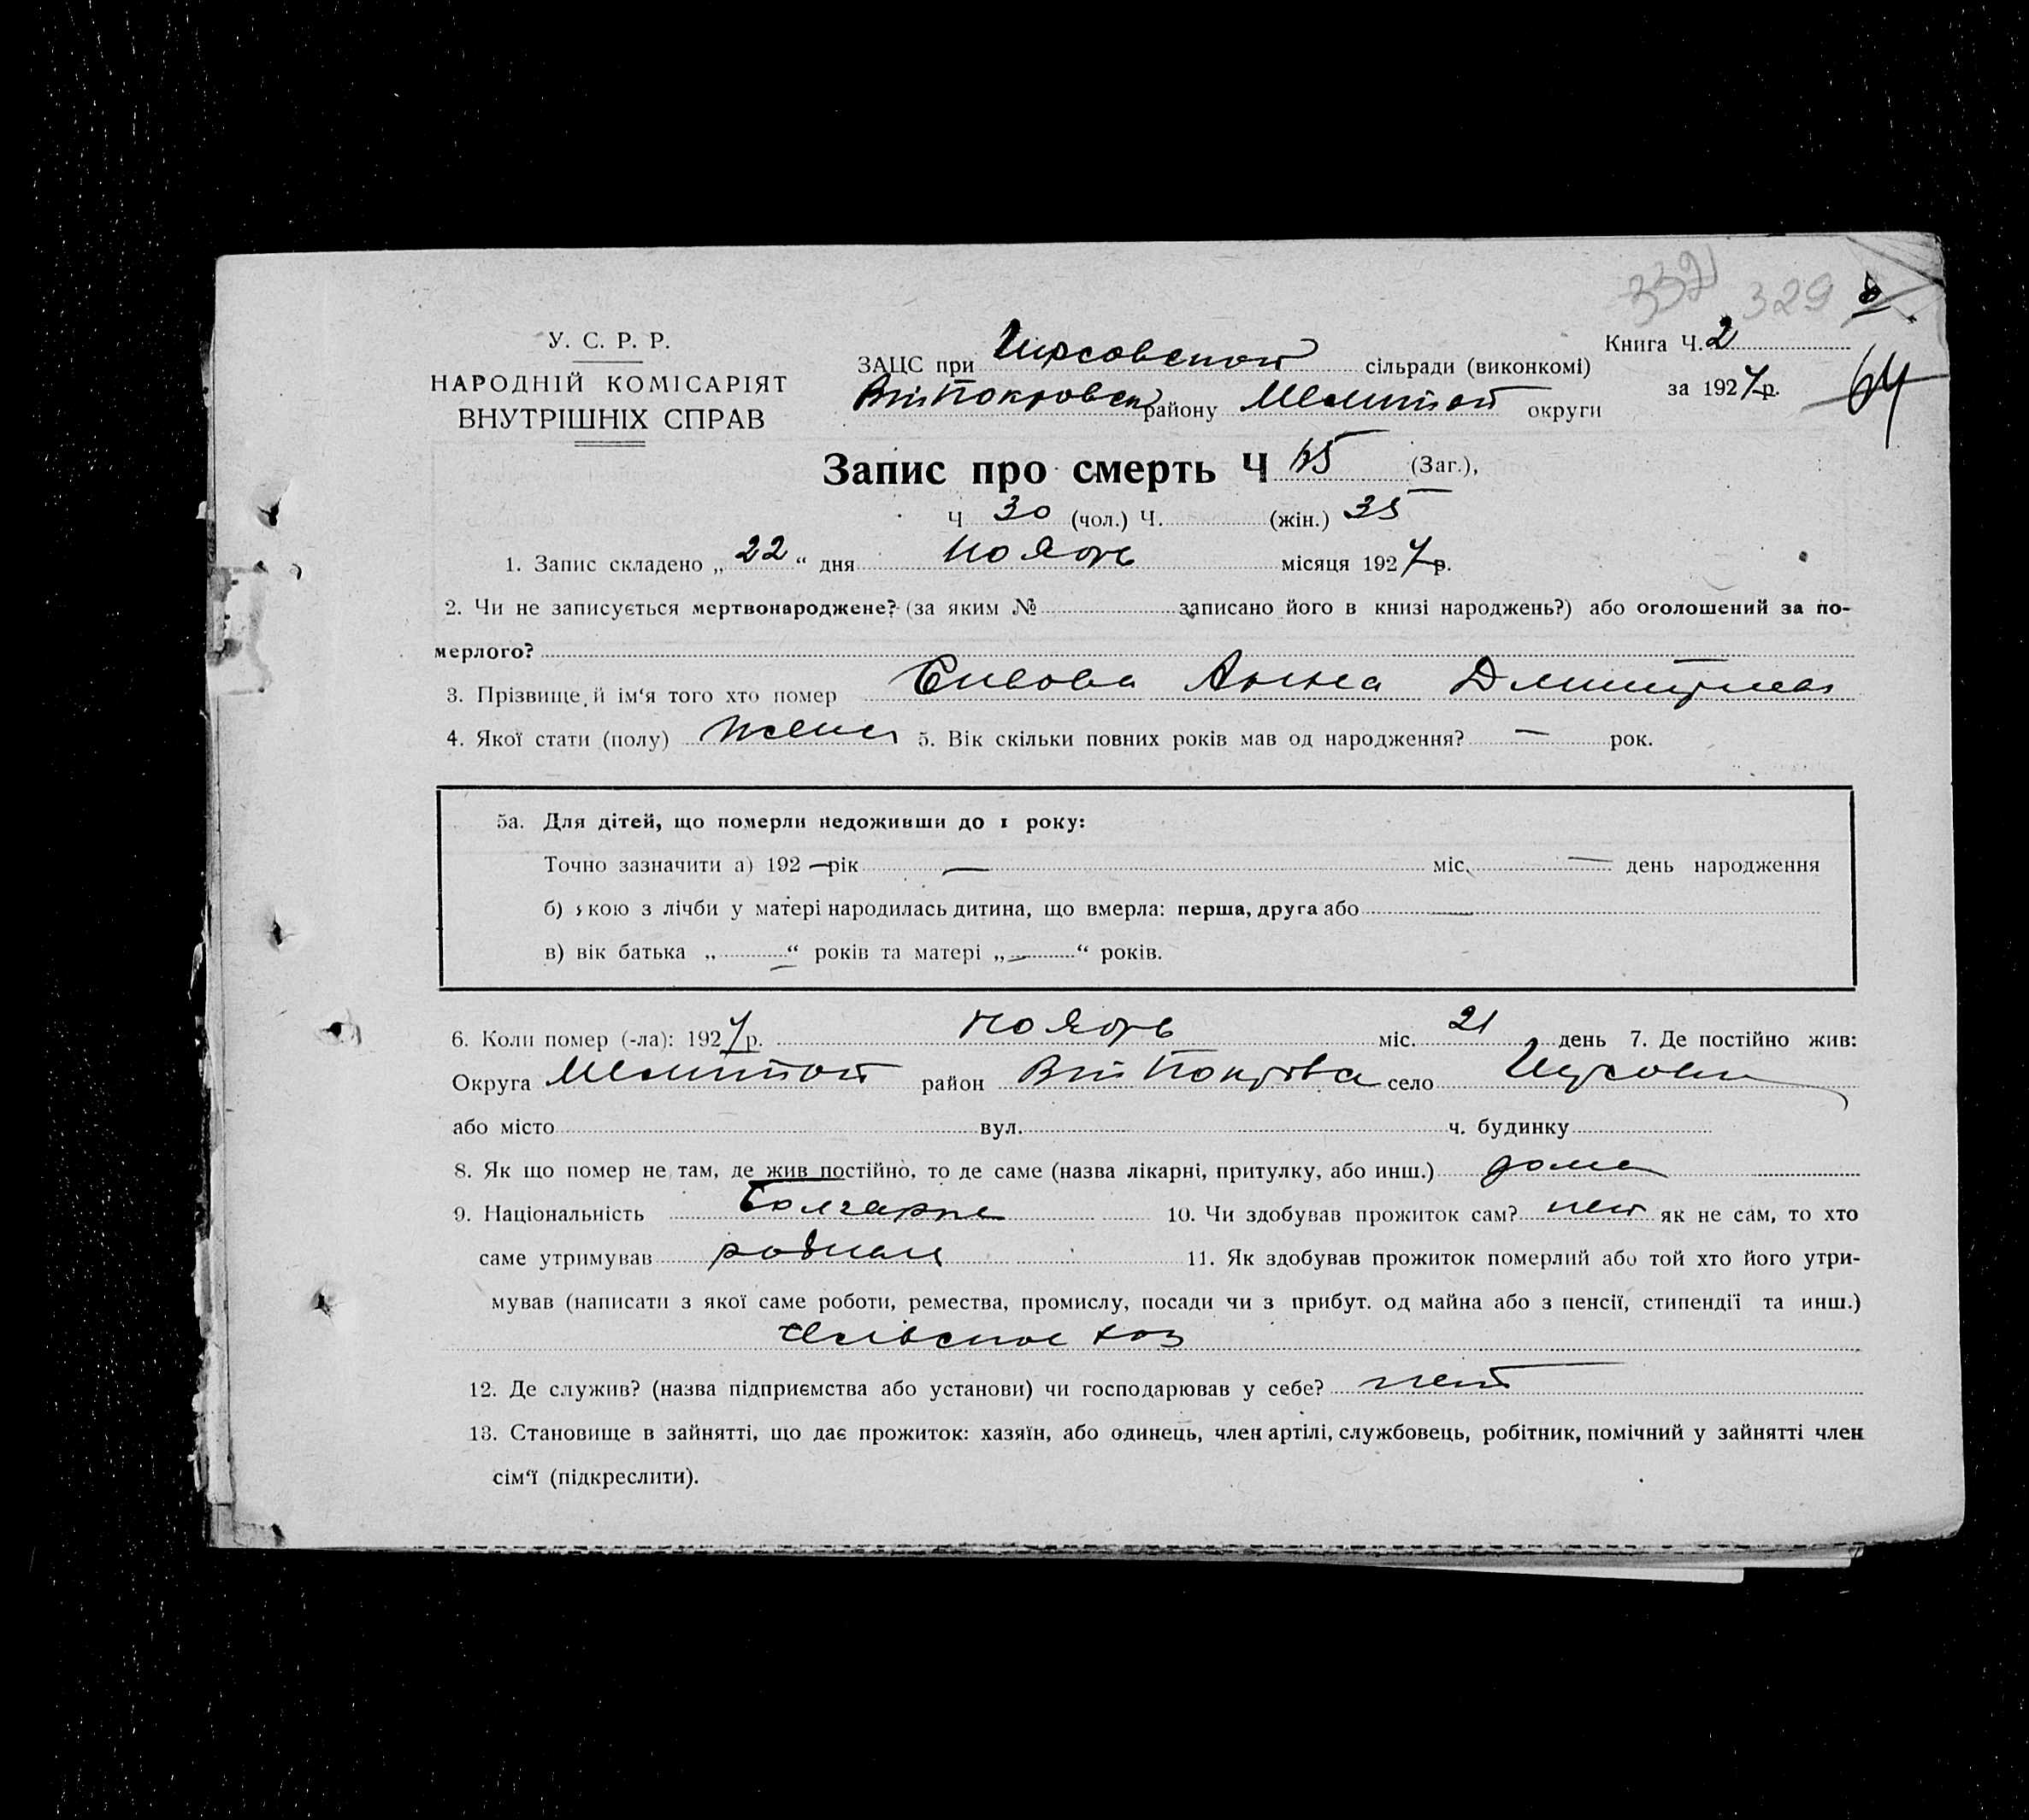 3321 329
У. С. Р. Р.
НАРОДНІЙ КОМІСАРІЯТ
ВНУТРІШНІХ СПРАВ
ЗАЦС при Гирсовской сільради (виконкомі)
ВтПокровск району Мелитоп округи
Книга Ч. 2
за 1927 р.
64
Запис про смерть Ч 65 (Заг.),
Ч 30 (чол.) Ч. (жін.) 35
1. Запис складено „ 22 “ дня ноябрь місяця 1927 р.
2. Чи не записується мертвонароджене? (за яким № записано його в книзі народжень?) або оголошений за по-
мерлого?
3. Прізвище й ім‘я того хто помер Анна Дмитриев
4. Якої стати (полу) жен 5. Вік скільки повних років мав од народження? — рок.
5а. Для дітей, що померли недоживши до 1 року:
Точно зазначити а) 192 — рік — міс. — день народження
б) якою з лічби у матері народилась дитина, що вмерла: перша, друга або —
в) вік батька „ — “ років та матері „ — “ років.
6. Коли помер (-ла): 1927 р. ноябрь міс. 21 день 7. Де постійно жив:
Округа Мелитоп район ВтПокровка село Гирсовка
або місто вул. ч. будинку
8. Як що помер не там, де жив постійно, то де саме (назва лікарні, притулку, або инш.) дома
9. Національність болгарка 10. Чи здобував прожиток сам? нет як не сам, то хто
саме утримував 11. Як здобував прожиток померлий або той хто його утри-
мував (написати з якої саме роботи, ремества, промислу, посади чи з прибут. од майна або з пенсії, стипендії та инш.)
сельское хоз
12. Де служив? (назва підприємства або установи) чи господарював у себе? нет
13. Становище в зайнятті, що дає прожиток: хазяїн, або одинець, член артілі, службовець, робітник, помічний у зайнятті член
сім‘ї (підкреслити).